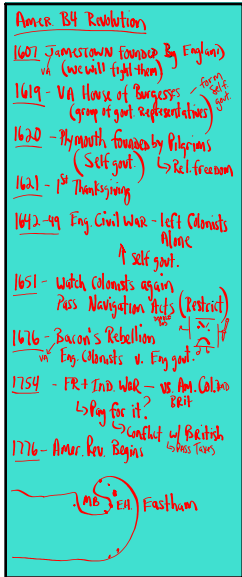 Amer. B4 Revolution
1607 Jamestown founded By England
VA (we will fight them)
1619 - VA House of Burgesses - form self gout.
(group of govt. Representatives)
1620 - Plymouth founded by Pilgrims
(Self govt.) ↳ Rel. freedom
1621 - 1st Thanksgiving
1642-49 Eng. Civil War - left Colonists
Alone
↑ self govt.
1651 - Watch Colonists again
Pass Navigation Acts (Restrict)
1676 - Bacon's Rebellion
VA Eng. Colonists v. Eng govt.
1754 - FR + IND. War - vs. Am. Col. AND
BRit
↳ Pay for it?
↳ Conflict w/ British
↳ Pass Taxes
1776 - Amer. Rev. Begins
MB EH. Eastham